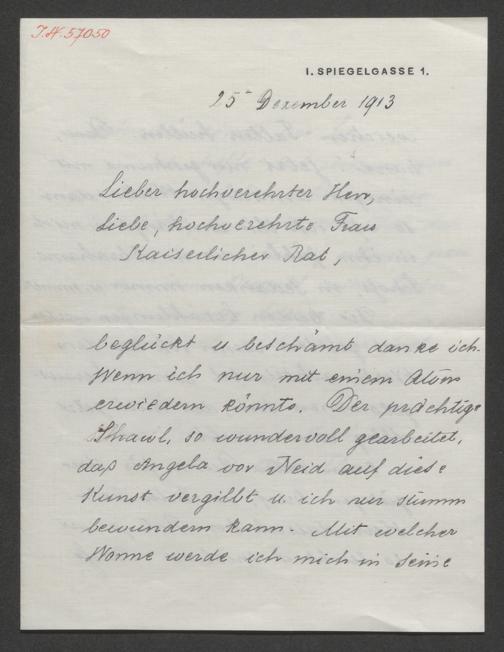 I.N. 57050
I. SPIEGELGASSE 1.
25 Dezember 1913
Lieber hochverehrter Herr,
Liebe, hochverehrte Frau
Kaiserlicher Rat,
beglückt u beschämt danke ich.
Wenn ich nur mit einem Atom
erwiedern könnte. Der prächtige
Shawl, so wundervoll gearbeitet,
daß Angela vor Neid auf diese
Kunst vergilbt u. ich nur stumm
bewundern kann. Mit welcher
Wonne werde ich mich in seine